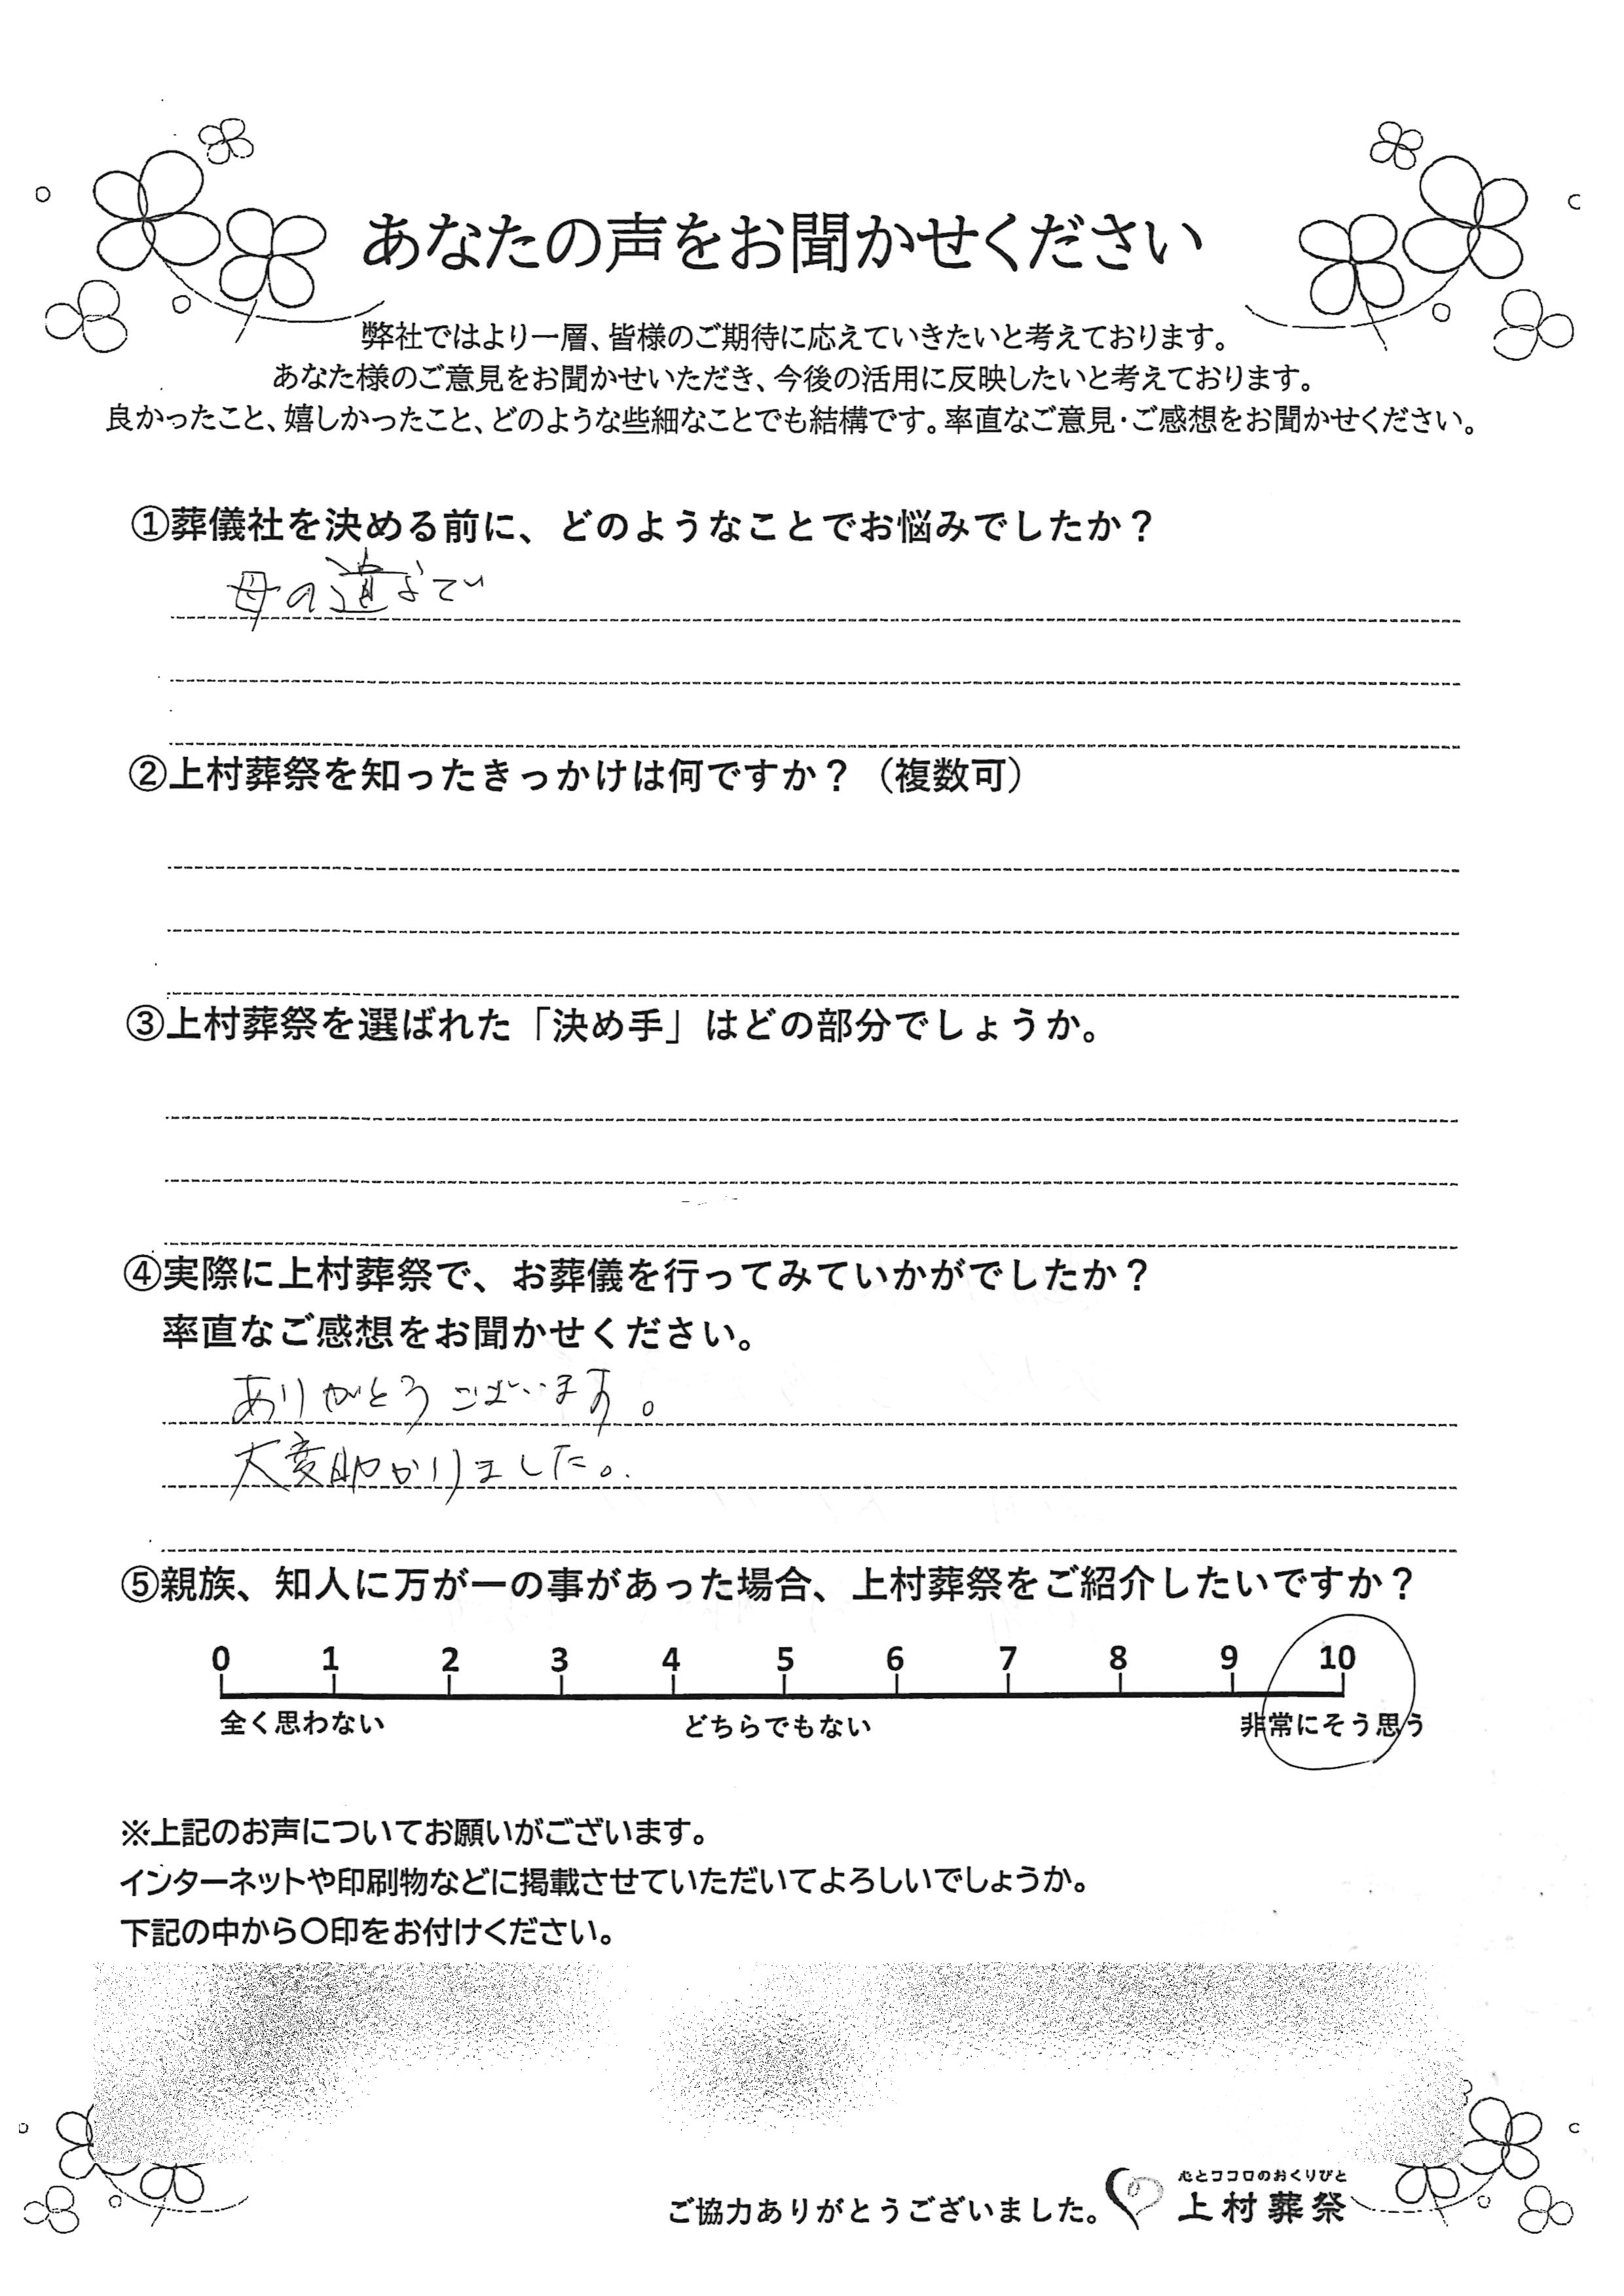 あなたの声をお聞かせください
弊社ではより一層、皆様のご期待に応えていきたいと考えております。
あなた様のご意見をお聞かせいただき、今後の活用に反映したいと考えております。
良かったこと、嬉しかったこと、どのような些細なことでも結構です。率直なご意見・ご感想をお聞かせください。
①葬儀社を決める前に、どのようなことでお悩みでしたか？
母の
②上村葬祭を知ったきっかけは何ですか？（複数可）
③上村葬祭を選ばれた「決め手」はどの部分でしょうか。
④実際に上村葬祭で、お葬儀を行ってみていかがでしたか？
率直なご感想をお聞かせください。
ありがとうございます。
大変助かりました。
⑤親族、知人に万が一の事があった場合、上村葬祭をご紹介したいですか？
0 1 2 3 4 5 6 7 8 9 10
全く思わない どちらでもない 非常にそう思う
※上記のお声についてお願いがございます。
インターネットや印刷物などに掲載させていただいてよろしいでしょうか。
下記の中から〇印をお付けください。
心とココロのおくりびと
ご協力ありがとうございました。 上村葬祭